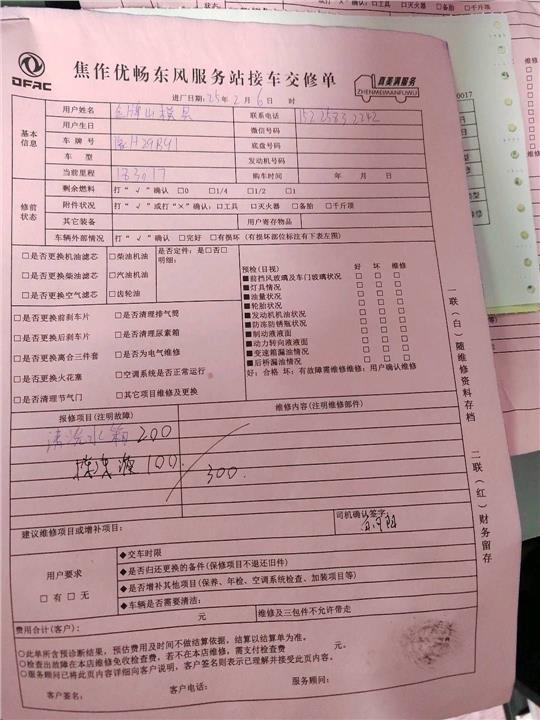 DFAC
焦作优畅东风服务站接车交修单
真美满服务
ZHENMEIMANFUWU
进厂日期:25年2月6日 时
基本信息
用户姓名 联系电话
用户生日 微信号码
车牌号 底盘号码
车型 发动机号码
当前里程 183017 购车时间 年 月 日
修前状态
剩余燃料 打“√”确认 □0 □1/4 □1/2 □1
附件状况 打“√”或打“×”确认:□工具 □灭火器 □备胎 □千斤顶
其它装备 用户寄存物品
车辆外部情况 打“√”□完好 □有损坏(有损坏部位标注有下表左图)
□是否更换机油滤芯 □柴油机油 是否定件:是□否□
□是否更换柴油滤芯 □汽油机油 明细:
□是否更换空气滤芯 □齿轮油
□是否更换前刹车片 □是否清理排气筒
□是否更换后刹车片 □是否清理尿素箱
□是否更换离合三件套 □是否为电气维修
□是否更换火花塞 □空调系统是否正常运行
□是否清理节气门 □其它项目维修及更换
预检(目视) 好 坏 维修
■前挡风玻璃及车门玻璃状况 □ □ □
■灯具情况 □ □ □
■油量状况 □ □ □
■轮胎状况 □ □ □
■发动机机油状况 □ □ □
■防冻防锈瓶状况 □ □ □
■制动液液面 □ □ □
■动力转向液液面 □ □ □
■变速箱漏油情况 □ □ □
■后桥漏油情况 □ □ □
好:合格 坏:有故障需维修维修:用户确认维修
报修项目(注明故障) 维修内容(注明维修部件)
清洗水箱 200
100
300.
建议维修项目或增补项目:
司机确认签字:
用户要求
□有 □无
◆交车时限
◆是否归还更换的备件(保修项目不退还旧件)
◆是否增补其他项目(保养、年检、空调系统检查、加装项目等)
◆车辆是否需要清洁:
费用合计(客户): 元 维修及三包件不允许带走
○此单所含预诊断结果,预估费用及时间不做结算依据,结算以结算单为准。
○检查出故障在本店维修免收检查费,若不在本店维修,需支付检查费 元。
○服务顾问已将此页内容详细向客户说明,客户签名则表示已理解并接受此页内容。
客户签名: 客户电话: 服务顾问:
一联(白)随维修资料存档
二联(红)财务留存